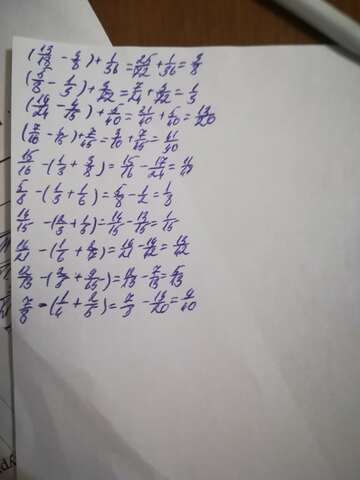 (13/18 - 3/8) + 1/36 = 25/72 + 1/36 = 3/8
(5/8 - 1/3) + 3/72 = 7/24 + 3/72 = 1/3
(19/24 - 4/15) + 5/40 = 21/40 + 5/40 = 13/20
(7/10 - 6/15) + 7/45 = 3/10 + 7/45 = 41/90
15/16 - (1/3 + 3/8) = 15/16 - 17/24 = 11/48
5/6 - (1/3 + 1/6) = 5/6 - 1/2 = 1/3
14/15 - (2/3 + 1/5) = 14/15 - 13/15 = 1/15
16/21 - (1/6 + 2/7) = 16/21 - 19/42 = 13/42
12/13 - (2/5 + 9/65) = 12/13 - 7/13 = 5/13
7/8 - (1/4 + 2/5) = 7/8 - 13/20 = 9/40